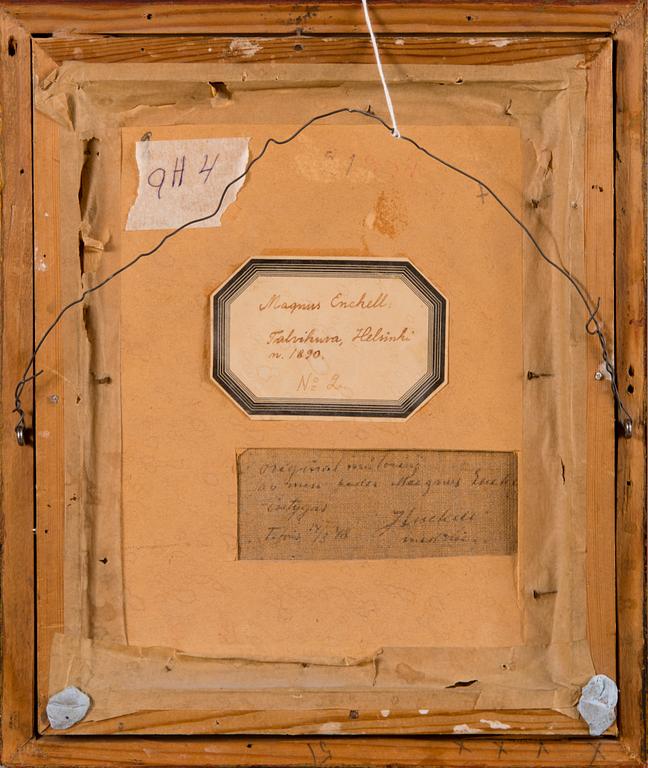 9H 4
Magnus Enckell.
Talvikuva, Helsinki
n. 1890.
No 2.
original målning
av min Magnus
intygas